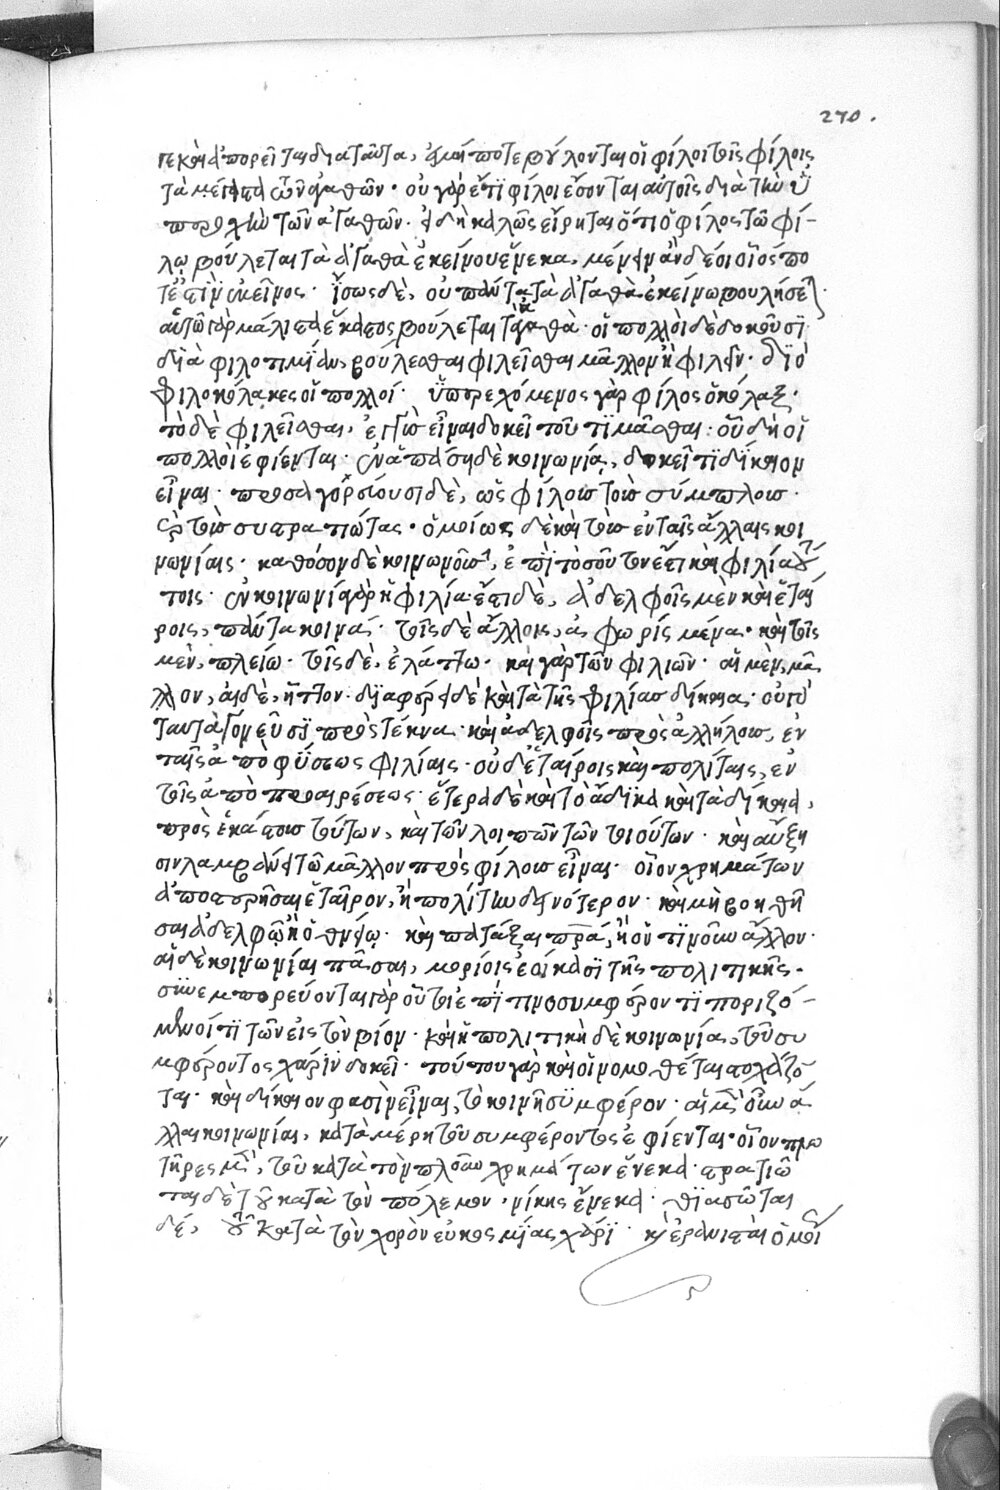 270.
γε καὶ ἀπορεῖται διὰ ταῦτα, εἰ μή ποτε βούλονται οἱ φίλοι τοῖς φίλοις
τὰ μέγιστα τῶν ἀγαθῶν · οὐ γὰρ ἔτι φίλοι ἔσονται αὐτοῖς διὰ τὴν ὑ
περοχὴν τῶν ἀγαθῶν · εἰ δὴ καλῶς εἴρηται ὅτι ὁ φίλος τῶ φί-
λῳ βούλεται τὰ ἀγαθὰ ἐκείνου ἕνεκα, μένειν ἂν δέοι οἷός πο
τέ ἐστιν ἐκεῖνος · ἴσως δὲ, οὐ πάντα τὰ ἀγαθὰ ἐκείνω βουλήσε ·
αὑτῶ γὰρ μάλιστα ἕκαστος βούλεται τἀγαθὰ · οἱ πολλοὶ δὲ δοκοῦσι
διὰ φιλοτιμίαν, βούλεσθαι φιλεῖσθαι μᾶλλον ἢ φιλεῖν · διὸ
φιλοκόλακες οἱ πολλοί · ὑπερεχόμενος γὰρ φίλος ὁ κόλαξ ·
τὸ δὲ φιλεῖσθαι, ἐγγὺς εἶναι δοκεῖ τοῦ τιμᾶσθαι · οὗ δὴ οἱ
πολλοὶ ἐφίενται · ἐν ἁπάση δὲ κοινωνία, δοκεῖ τι δίκαιον
εἶναι · προσαγορεύουσι δὲ, ὡς φίλους τοὺς σύμπλους ·
καὶ τοὺς συστρατιώτας · ὁμοίως δὲ καὶ τοὺς ἐν ταῖς ἄλλαις κοι
νωνίαις · καθόσον δὲ κοινωνοῦσι, ἐπὶ τοσοῦτόν ἐστι καὶ φιλία αὐ
τοῖς · ἐν κοινωνία γὰρ ἡ φιλία · ἔστι δὲ, ἀδελφοῖς μὲν καὶ ἑταί
ροις, πάντα κοινά · τοῖς δὲ ἄλλοις, ἀφωρισμένα · καὶ τοῖς
μὲν, πλείω · τοῖς δὲ, ἐλάττω · καὶ γὰρ τῶν φιλιῶν · αἱ μὲν, μᾶ
λλον, αἱ δὲ, ἧττον · διαφέρει δὲ καὶ τὰ τῆς φιλίας δίκαια · οὐ γὰρ
ταυτὰ γονεῦσι πρὸς τέκνα · καὶ ἀδελφοῖς πρὸς ἀλλήλους, ἐν
ταῖς ἀπὸ φύσεως φιλίαις · οὐδ' ἑταίροις καὶ πολίταις, ἐν
τοῖς ἀπὸ προαιρέσεως · ἕτερα δὲ καὶ τὸ ἄδικα καὶ τὰ δίκαια,
πρὸς ἑκάστους τούτων, καὶ τῶν λοιπῶν τῶν τοιούτων · καὶ αὔξη
σιν λαμβάνει τῶ μᾶλλον πρὸς φίλους εἶναι · οἷον χρημάτων
ἀποστερῆσαι ἑταῖρον, ἢ πολίτην δεινότερον · καὶ μὴ βοηθῆ
σαι ἀδελφῶ ἢ ὀθνείῳ · καὶ πατάξαι πρα, ἢ ὁντινοῦν ἄλλον ·
αἱ δὲ κοινωνίαι πᾶσαι, μορίοις ἐοίκασι τῆς πολιτικῆς ·
συνεμπορεύονται γὰρ οὗτοι ἐπί τινι συμφέροντι ποριζό-
μενοί τι τῶν εἰς τὸν βίον · καὶ ἡ πολιτικὴ δὲ κοινωνία, τοῦ συ
μφέροντος χάριν δοκεῖ · τούτου γὰρ καὶ οἱ νομοθέται στοχάζο
ται · καὶ δίκαιον φασὶν εἶναι, τὸ κοινῆ συμφέρον · αἱ μὲν οὖν ἄ
λλαι κοινωνίαι, κατὰ μέρη τοῦ συμφέροντος ἐφίενται · οἷον πλω
τῆρες μὲν, τοῦ κατὰ τὸν πλοῦν χρημάτων ἕνεκα · στρατιῶ
ται δὲ τοῦ κατὰ τὸν πόλεμον, νίκης ἕνεκα · θιασῶται
δέ, τοῦ κατὰ τὸν χορὸν εὐκοσμίας χάριν · καὶ ἐρανισταὶ ὁμοί